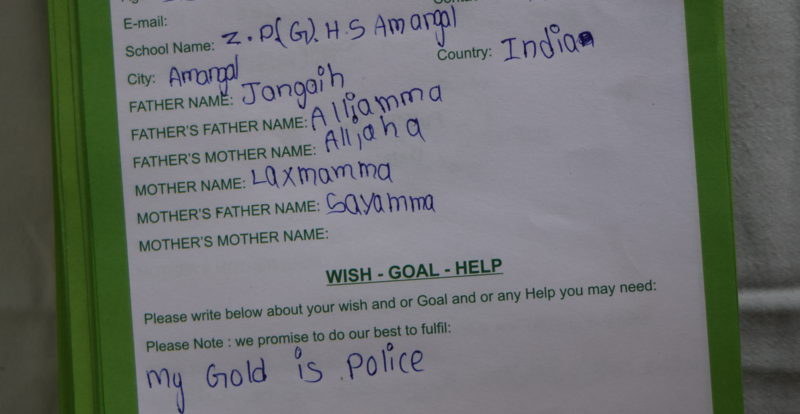 E-mail:
School Name: Z.P(G).H.S Amangal
City: Amangal Country: India
FATHER NAME: Jangaih
FATHER'S FATHER NAME: Alliamma
FATHER'S MOTHER NAME: Alliaha
MOTHER NAME: Laxmamma
MOTHER'S FATHER NAME: Sayamma
MOTHER'S MOTHER NAME:
WISH - GOAL - HELP
Please write below about your wish and or Goal and or any Help you may need:
Please Note : we promise to do our best to fulfil:
my Gold is Police